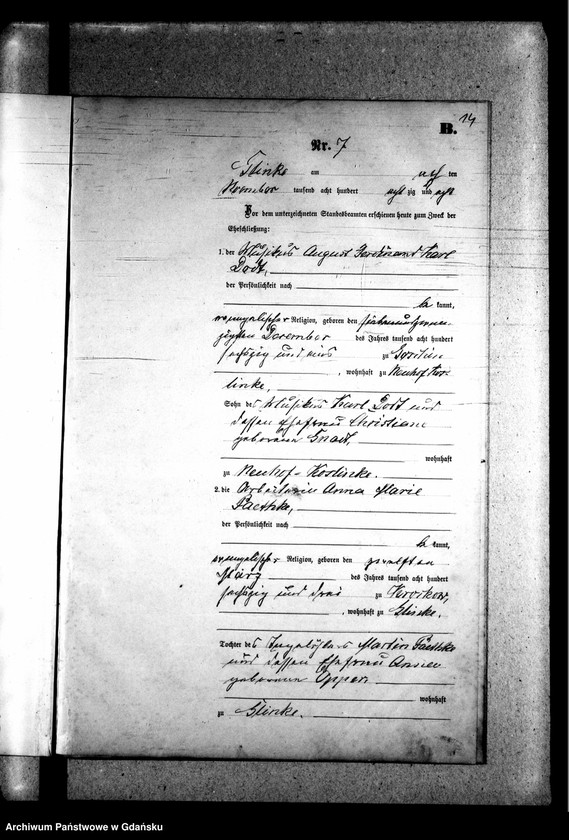 B. 14
Nr. 7
Glinke am acht ten
November tausend acht hundert acht zig und acht
Vor dem unterzeichneten Standesbeamten erschienen heute zum Zweck der
Eheschließung:
1. der Musikus August Ferdinand Karl
Dodt,
der Persönlichkeit nach
be kannt,
evangelischer Religion, geboren den siebenundzwan-
zigsten Dezember des Jahres tausend acht hundert
sechszig und eins zu
, wohnhaft zu Neuhof Kos-
linke,
Sohn des Musikus Karl Dodt und
dessen Ehefrau Christiane
geborene
wohnhaft
zu Neuhof-Koslinke.
2. die Arbeiterin Anna Marie
Paethke,
der Persönlichkeit nach
be kannt,
evangelischer Religion, geboren den zwölften
März des Jahres tausend acht hundert
sechszig und drei zu
, wohnhaft zu Glinke.
Tochter des Martin Paethke
und dessen Ehefrau
geborene
wohnhaft
zu Glinke.
Archiwum Państwowe w Gdańsku